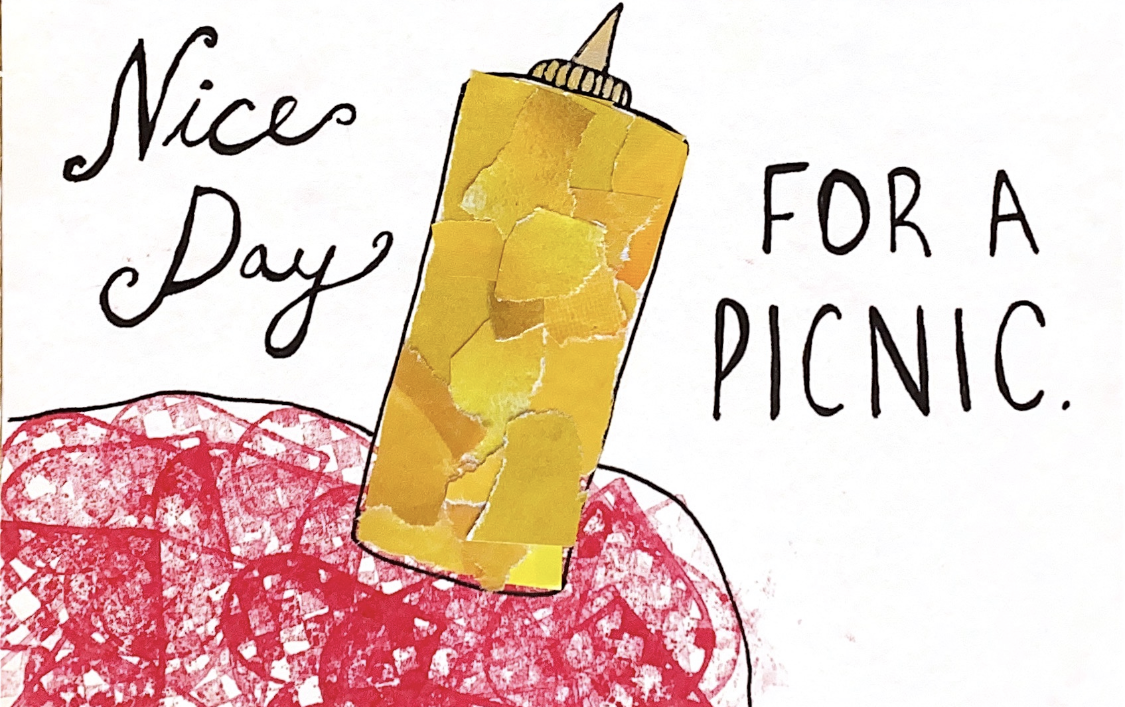 Nice
Day
FOR A
PICNIC.